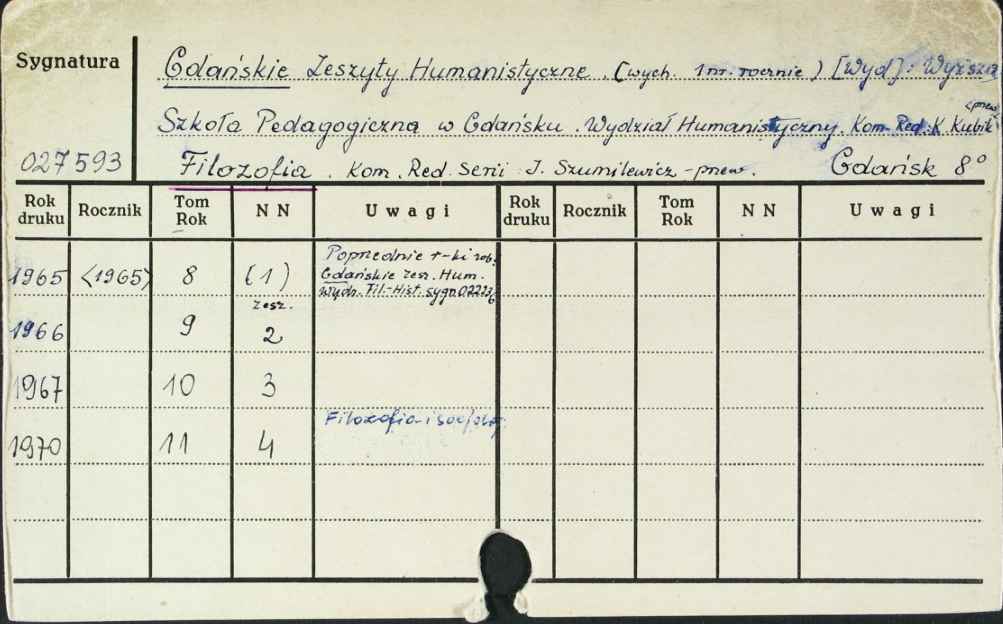 Sygnatura
Gdańskie Zeszyty Humanistyczne (wych. 1 nr. rocznie) [Wyd]: Wyższa
Szkoła Pedagogiczna w Gdańsku. Wydział Humanistyczny. Kom. Red. K. Kubik
<przew
027593 Filozofia. Kom. Red. Serii: J. Szumilewicz - przew. Gdańsk 8°
Rok druku Rocznik Tom Rok N N Uwagi Rok druku Rocznik Tom Rok N N Uwagi
Poprzednie r-ki zob.
1965 <1965> 8 (1) Gdańskie Zesz. Hum.
Wydz. Fil.-Hist. sygn. 022236
zesz.
1966 9 2
1967 10 3
Filozofia i socjolog.
1970 11 4